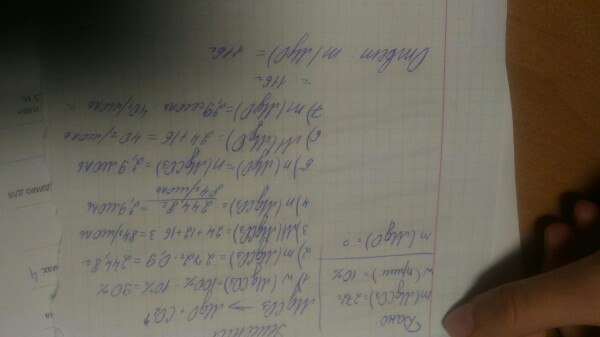 Дано
m(MgCO3)=272г
w(прим)=10%
m(MgO)=?
Решение
MgCO3 → MgO + CO2↑
1) w(MgCO3)=100% - 10% = 90%
2) m(MgCO3)=272г · 0,9 = 244,8г
3) M(MgCO3)=24+12+16·3=84г/моль
4) n(MgCO3)= 244,8г / 84г/моль = 2,9моль
5) n(MgO)=n(MgCO3)=2,9моль
6) M(MgO)=24+16=40г/моль
7) m(MgO)=2,9моль · 40г/моль =
= 116г
Ответ: m(MgO)=116г
план
димо для